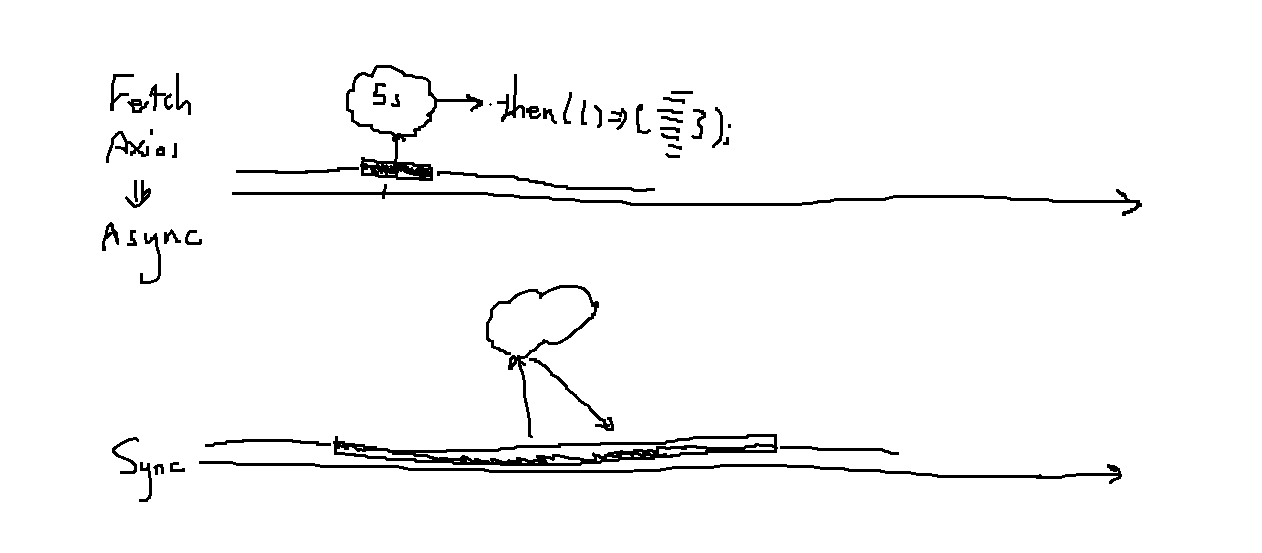 Fetch
Axios
⇓
Async
5s
.then(()=>{ });
Sync